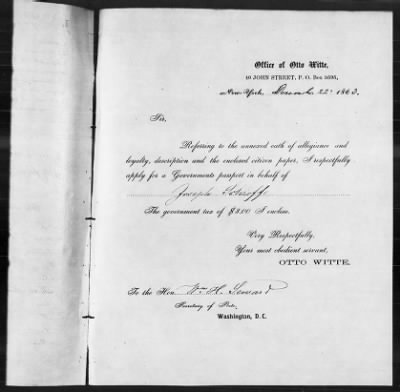 Office of Otto Witte,
40 JOHN STREET, P. O. Box
New York, 22d 1863.
Sir,
Referring to the annexed oath of allegiance and
loyalty, description and the enclosed citizen paper, I respectfully
apply for a Governments passport in behalf of
Joseph
The government tax of $3.00 I enclose.
Very Respectfully,
Your most obedient servant,
OTTO WITTE.
To the Hon. Wm H. Seward
Secretary of State,
Washington, D. C.